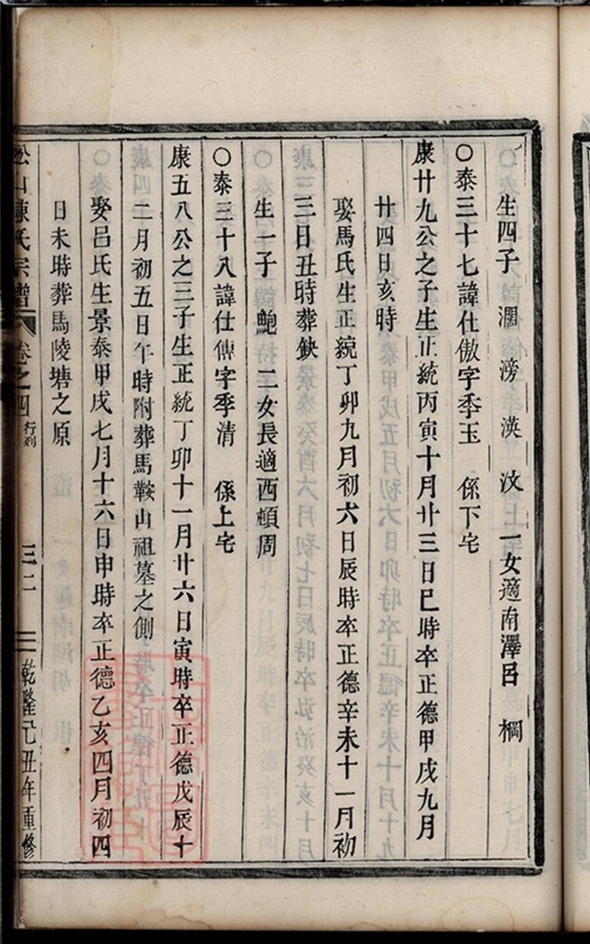 生四子　濶　滂　渶　汶　一女適南澤呂　棡
○泰三十七諱仕傲字季玉　係下宅
康廿九公之子生正統丙寅十月廿三日巳時卒正德甲戌九月
廿四日亥時
娶馬氏生正統丁卯九月初六日辰時卒正德辛未十一月初
三日丑時葬缺
生一子　鮑　二女長適西頓周
○泰三十八諱仕傳字季清　係上宅
康五八公之三子生正統丁卯十一月廿六日寅時卒正德戊辰十
二月初五日午時附葬馬鞍山祖墓之側
娶呂氏生景泰甲戌七月十六日申時卒正德乙亥四月初四
日未時葬馬陵塘之原
山陳氏宗譜　卷之四　行列　三二　乾隆　丑年重修